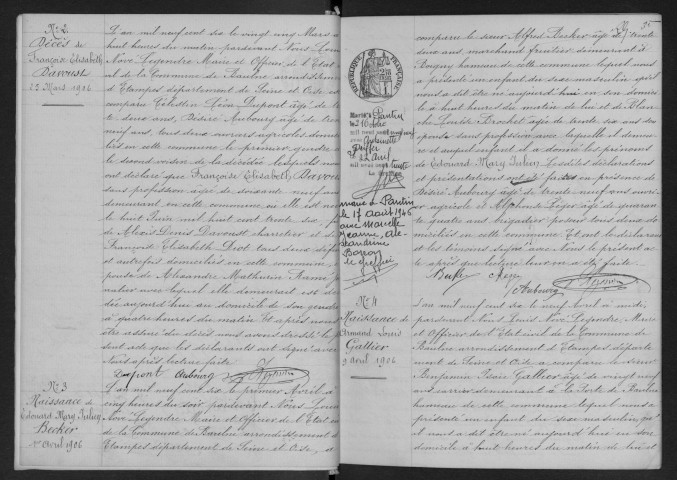 No 2
Décès de
Françoise Elisabeth
Davoust
22 Mars 1906
L'an mil neuf cent six le vingt cinq Mars à
huit heures du matin pardevant Nous Louis
Noré Legendre Maire et Officier de l'Etat
de la Commune de Baulne arrondissement
d'Etampes département de Seine et Oise
comparu Célestin Dupont âgé de
deux ans, Désiré Aubourg âgé de
neuf ans, tous deux ouvriers agricoles
liés en cette commune le premier gendre
le second voisin de la décédée lesquels nous
ont déclaré que Françoise Elisabeth Davoust
sans profession âgée de soixante neuf ans
demeurant en cette commune, où elle est née
le huit Juin mil huit cent trente six, fille
de Denis Davoust charretier et
François Elisabeth tous deux
et autrefois domiciliés en cette commune
épouse de Alexandre Mathurin
nalier avec lequel elle demeurait est
dée aujourd'hui au domicile de son gendre
à quatre heures du matin Et après nous
être assuré du décès nous avons dressé le
sent acte que les déclarants ont signé avec
nous après lecture faite
Dupont Aubourg
No 3
Naissance de
Edouard Mary Julien
Becker
1er Avril 1906
L'an mil neuf cent six le premier Avril à
cinq heures du soir, pardevant Nous Louis
Noré Legendre Maire et Officier de l'Etat
de la Commune de Baulne arrondissement
Etampes département de Seine et Oise, a
35
comparu le sieur Alfred Becker âgé de trente
deux ans, marchand fruitier demeurant à
hameau de cette commune lequel nous
a présenté un enfant du sexe masculin qu'il
nous a dit être né aujourd'hui en son domicile
à huit heures du matin de lui et de
che Louise âgée de trente six ans
épouse sans profession avec laquelle il demeure
et auquel enfant il a donné les prénoms
de Edouard Mary Julien Lesdites déclarations
et présentations ont été faites en présence de
Désiré Aubourg âgé de trente neuf ans
ouvrier agricole et Alphonse Léger âgé de
quatre ans brigadier poseur tous deux
miciliés en cette commune Et ont le déclarant
et les témoins signé avec nous le présent
te après que lecture leur en a été faite
Becker Léger
Aubourg
REPUBLIQUE FRANÇAISE
Marié à Pantin
le 10
mil neuf cent
avec Antoinette
22 avril
mil neuf cent trente
Le Greffier
Pantin
le 17 août 1946
avec Marcelle
Jeanne,
xandrine
le greffier
No 4
Naissance de
Armand Louis
Gallier
9 avril 1906
L'an mil neuf cent six le neuf Avril à midi,
pardevant Nous Louis Noré Legendre, Maire
et Officier de l'Etat civil de la Commune de
Baulne arrondissement d'Etampes départe
ment de Seine et Oise a comparu le sieur
Benjamin Gallier âgé de vingt
ans carrier demeurant à la Ferté de Baulne
hameau de cette commune lequel nous
a présenté un enfant du sexe masculin qu'
il nous a dit être né aujourd'hui en son
domicile à huit heures du matin de lui et